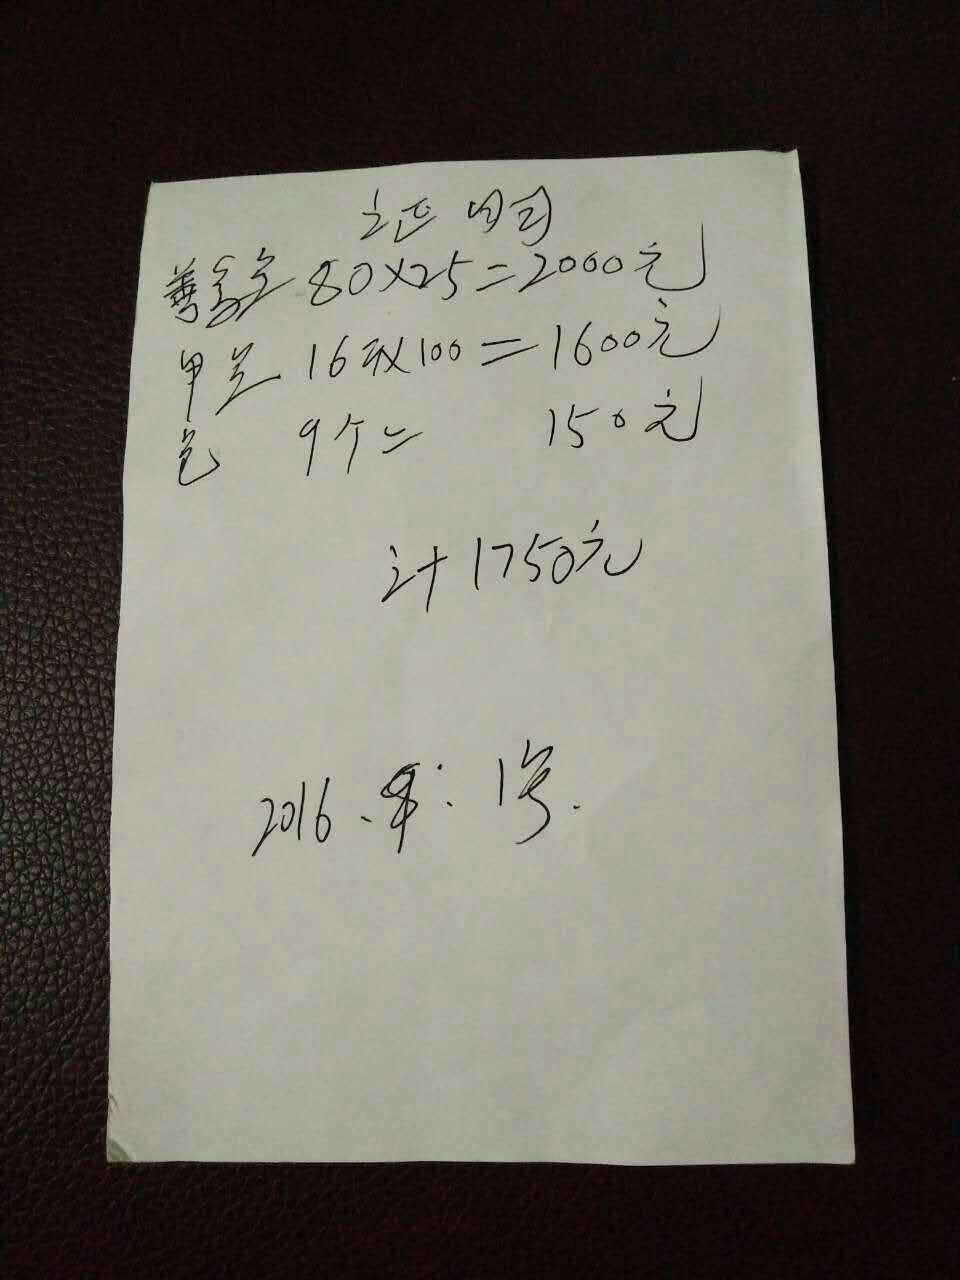 证明
80×25=2000元
甲 16 ×100=1600元
包 9个 = 150元
计1750元
2016. 1号.